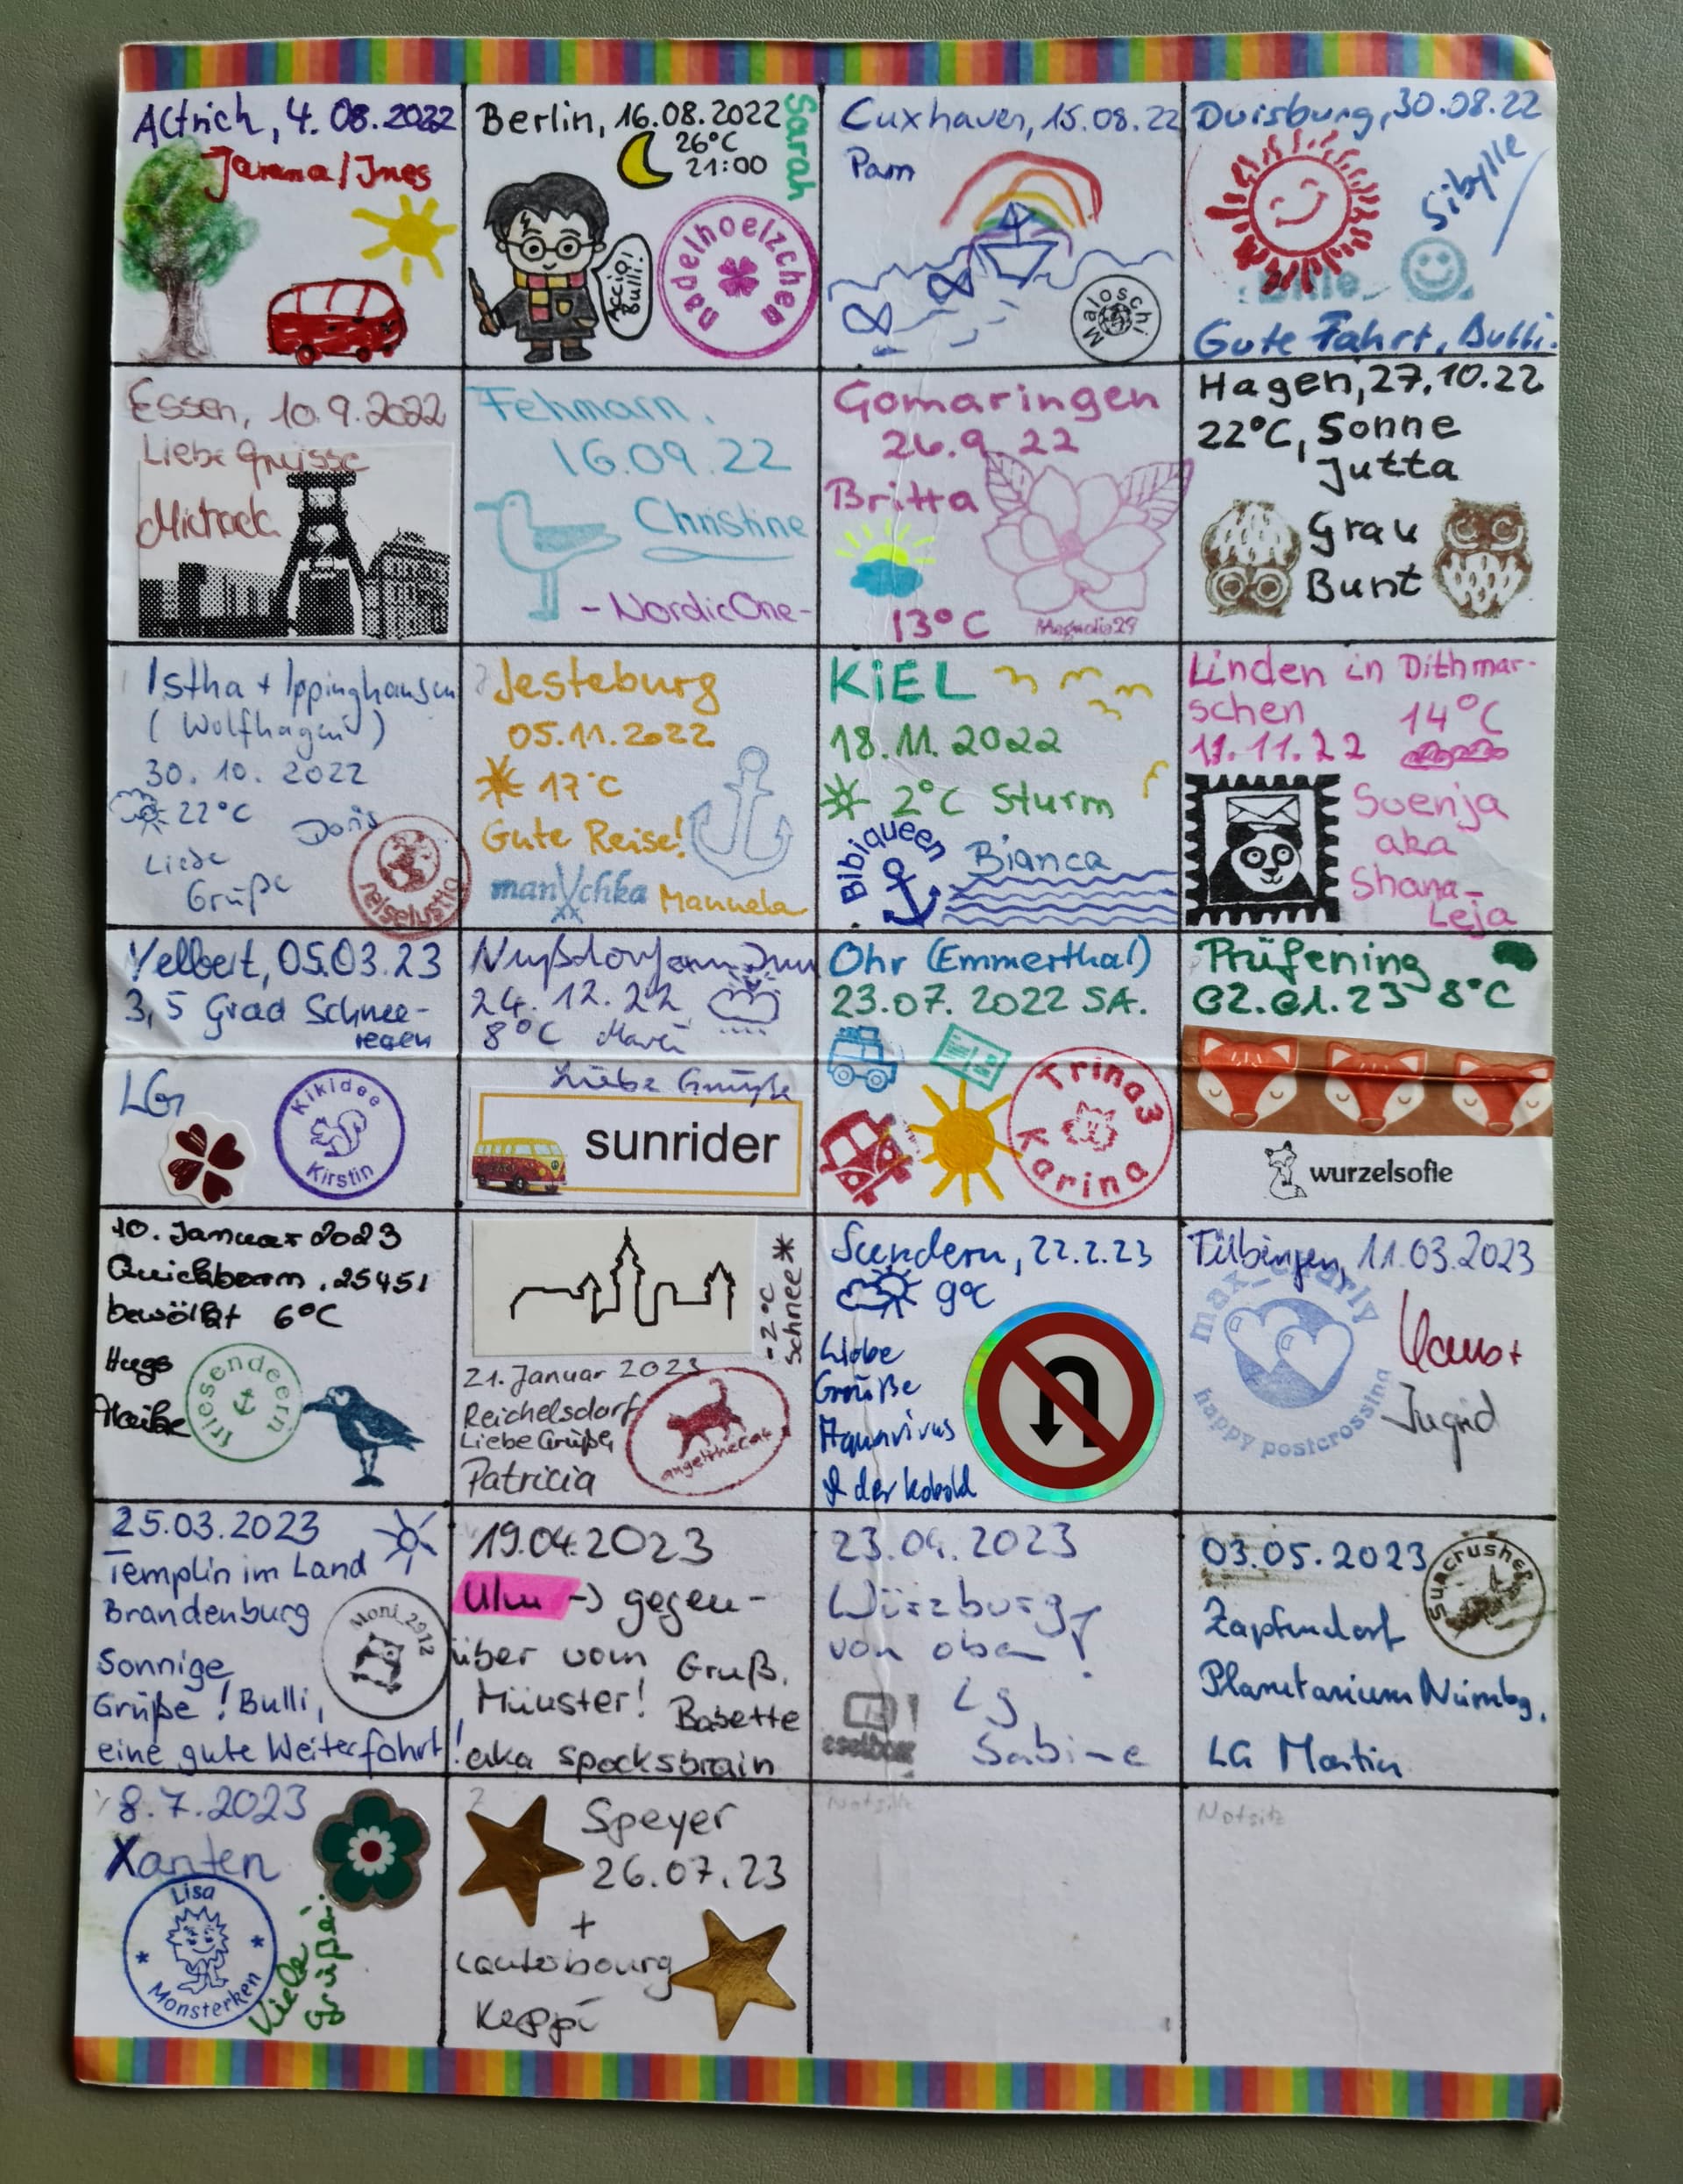 Altrich, 4.08.2022
Jarena/Ines
Berlin, 16.08.2022
Sarah
26°C
21:00
Accio Bulli!
nadelhoelzchen
Cuxhaven, 15.08.22
Pam
Maloschi
Duisburg, 30.08.22
Sibylle
Gute Fahrt, Bulli.
Essen, 10.9.2022
Liebe Grüsse
Michael
Fehmarn,
16.09.22
Christine
- NordicOne -
Gomaringen
26.9.22
Britta
13°C
Magnolia29
Hagen, 27.10.22
22°C, Sonne
Jutta
Grau
Bunt
Istha + Ippinghausen
(Wolfhagen)
30. 10. 2022
22°C
Doris
Liebe
Grüße
reiselustig
Jesteburg
05.11.2022
17°C
Gute Reise!
manYchka
Manuela
KiEL
18.11.2022
2°C Sturm
Bibiqueen
Bianca
Linden in Dithmar-
schen
14°C
11.11.22
Svenja
aka
Shana-
Leja
Velbert, 05.03.23
3,5 Grad Schnee-
regen
LG
Kikidee
Kirstin
Nußdorf am Inn
24.12.22
8°C
Liebe Grüße
sunrider
Ohr (Emmerthal)
23.07.2022 SA.
Trina3
Karina
Prüfening
02.01.23 8°C
wurzelsofie
10. Januar 2023
Quickborn, 25451
bewölkt 6°C
Hugs
Maike
friesendeern
-2°C
Schnee*
21. Januar 2023
Reichelsdorf
Liebe Grüße,
Patricia
angelthecat
Sundern, 22.2.23
9°C
Liebe
Grüße
Aquavirus
& der Kobold
Tübingen, 11.03.2023
max_charly
happy postcrossing
Klaus +
Ingrid
25.03.2023
Templin im Land
Brandenburg
Moni 2912
Sonnige
Grüße! Bulli,
eine gute Weiterfahrt!
19.04.2023
Ulm -> gegen-
über vom
Münster!
Gruß,
Babette
aka spocksbrain
23.04.2023
Würzburg
von oben!
Lg
Sabine
eselbox
03.05.2023
Suncrusher
Zapfendorf
Planetarium Nürnbg.
LG Martin
8.7.2023
Xanten
Lisa
Monsterken
Viele
Grüße.
Speyer
26.07.23
+
Lauterbourg
Keppi
Notsitz
Notsitz